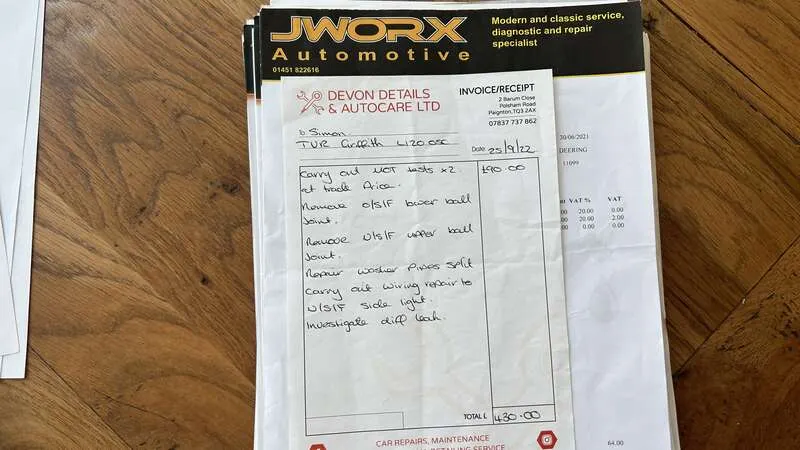 JWORX
Automotive
01451 822616
Modern and classic service,
diagnostic and repair
specialist
DEVON DETAILS
& AUTOCARE LTD
INVOICE/RECEIPT
2 Barum Close
Polsham Road
Paignton,TQ3 2AX
07837 737 862
to Simon
TVR Griffith L120 OSC
Date 25/9/22
Carry out MOT tests x2 £90.00
at trade Price.
Remove O/S/F lower ball
Joint.
Remove N/S/F upper ball
Joint.
Repair washer Pipes Split
Carry out wiring repair to
N/S/F side light.
Investigate diff leak.
TOTAL £ 430.00
CAR REPAIRS, MAINTENANCE
DETAILING SERVICE
30/06/2021
DEERING
11099
VAT % VAT
.00 20.00 0.00
.00 20.00 2.00
.00 0.00 0.00
64.00